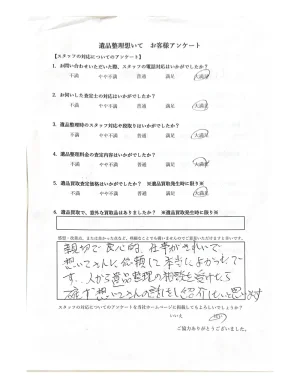 遺品整理想いて お客様アンケート
【スタッフの対応についてのアンケート】
1. お問い合わせいただいた際、スタッフの電話対応はいかがでしたか？
不満 やや不満 普通 満足 大満足
2. お伺いした査定士の対応はいかがでしたか？
不満 やや不満 普通 満足 大満足
3. 遺品整理時のスタッフ対応や段取りはいかがでしたか？
不満 やや不満 普通 満足 大満足
4. 遺品整理料金の査定内容はいかがでしたか？
不満 やや不満 普通 満足 大満足
5. 遺品買取査定価格はいかがでしたか？ ※遺品買取発生時に限り※
不満 やや不満 普通 満足 大満足
6. 遺品買取で、意外な買取品はありましたか？ ※遺品買取発生時に限り※
親切で良心的、仕事がきれいで
想いてさんに依頼して本当によかったで
す。人から遺品整理の相談を受けたら
必ず想いてさんの話をし紹介したいと思います
スタッフの対応についてのアンケートを当社ホームページに掲載してもよろしいでしょうか？
いいえ はい
ご協力ありがとうございました。